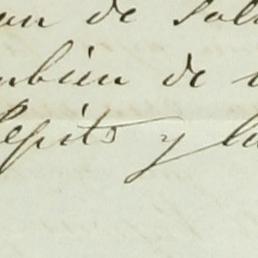 on de Sal
mbien de
Pepito y la